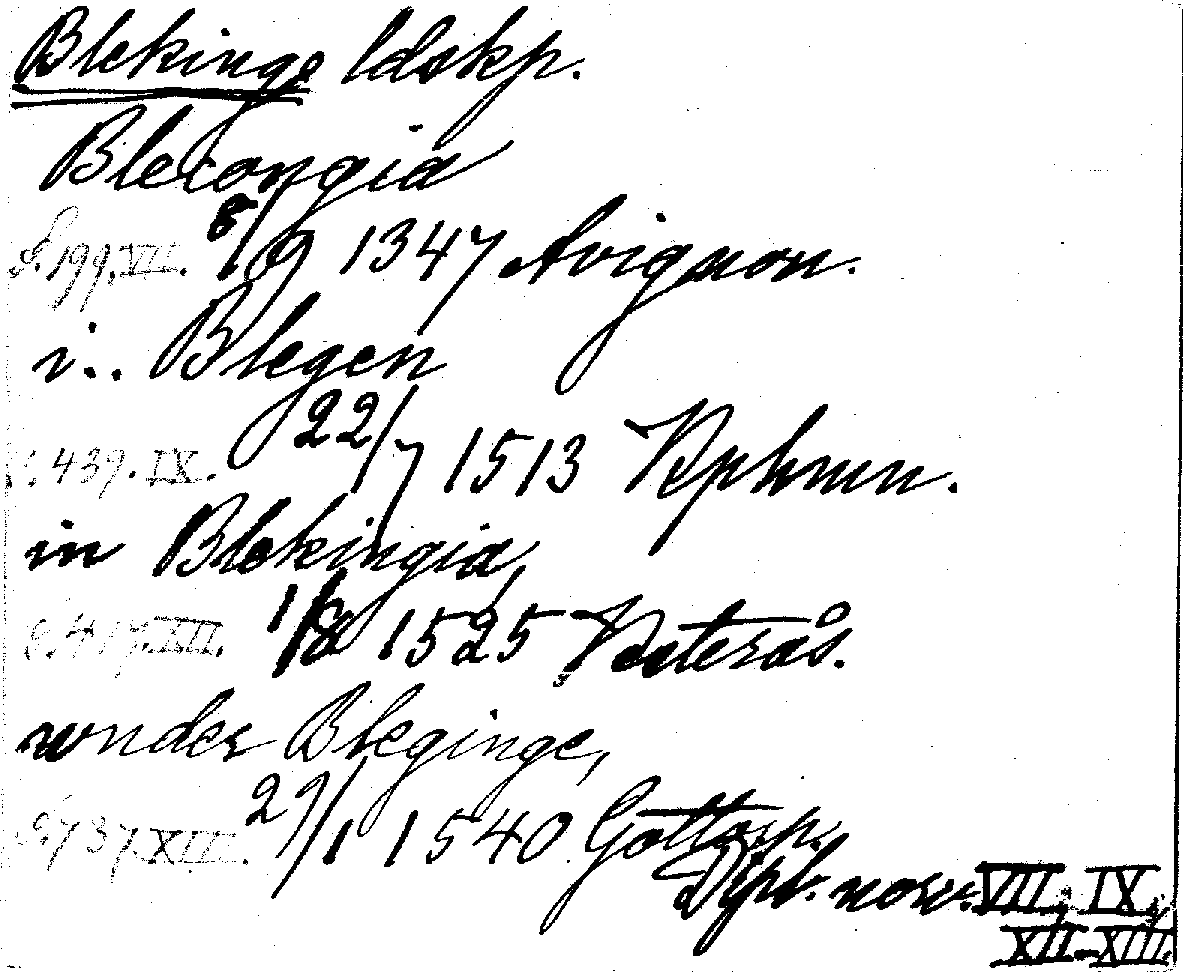 Blekinge ldskp.
Blecongia
S. 199. VII. 8/9 1347 Avignon.
i.. Blegen
S. 439. IX. 22/7 1513 Kphmn.
in Blekingia,
S. 417. XII. 1/8 1525 Vesterås.
vnder Bleginge,
S. 737. XIII. 29/1 1540 Gottorp.
Dipl. norv. VII, IX,
XII-XIII.